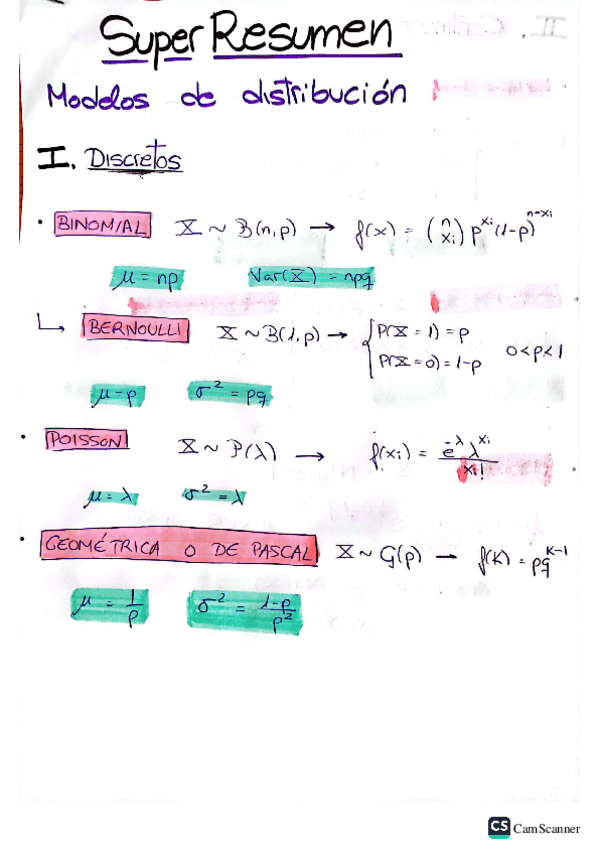 Super Resumen
Modelos de distribución
I. Discretos
• BINOMIAL X ~ B(n,p) → f(x) = (n xi) p^xi (1-p)^n-xi
μ = np Var(X) = npq
↳ BERNOULLI X ~ B(1,p) → { P(X = 1) = p
P(X = 0) = 1-p 0<p<1
μ = p σ² = pq
• POISSON X ~ P(λ) → f(xi) = e^-λ λ^xi / xi!
μ = λ σ² = λ
• GEOMÉTRICA O DE PASCAL X ~ G(p) → f(K) = pq^K-1
μ = 1/p σ² = 1-p/p²
CS CamScanner